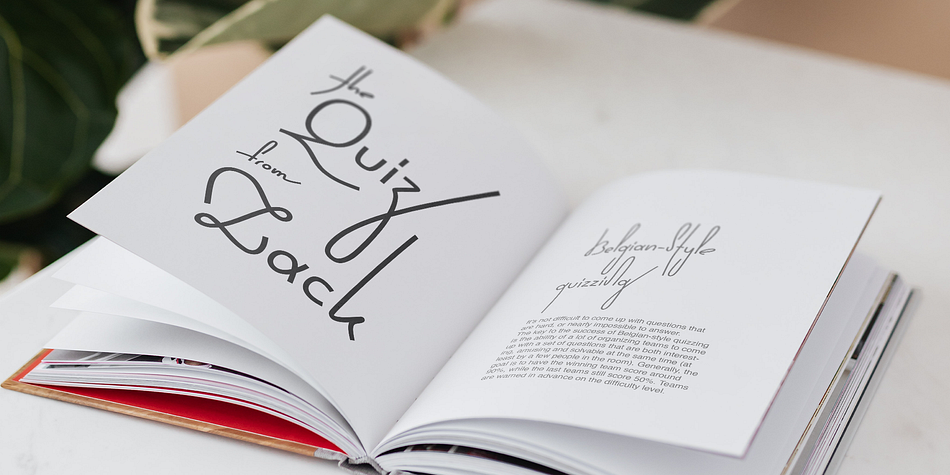 the
Quiz
from
Zack
Belgian-Style
quizzing
It's not difficult to come up with questions that
are hard, or nearly impossible to answer.
The key to the success of Belgian-style quizzing
is the ability of a lot of organizing teams to come
up with a set of questions that are both interest-
ing, amusing and solvable at the same time (at
least by a few people in the room). Generally, the
goal is to have the winning team score around
90%, while the last teams still score 50%. Teams
are warned in advance on the difficulty level.